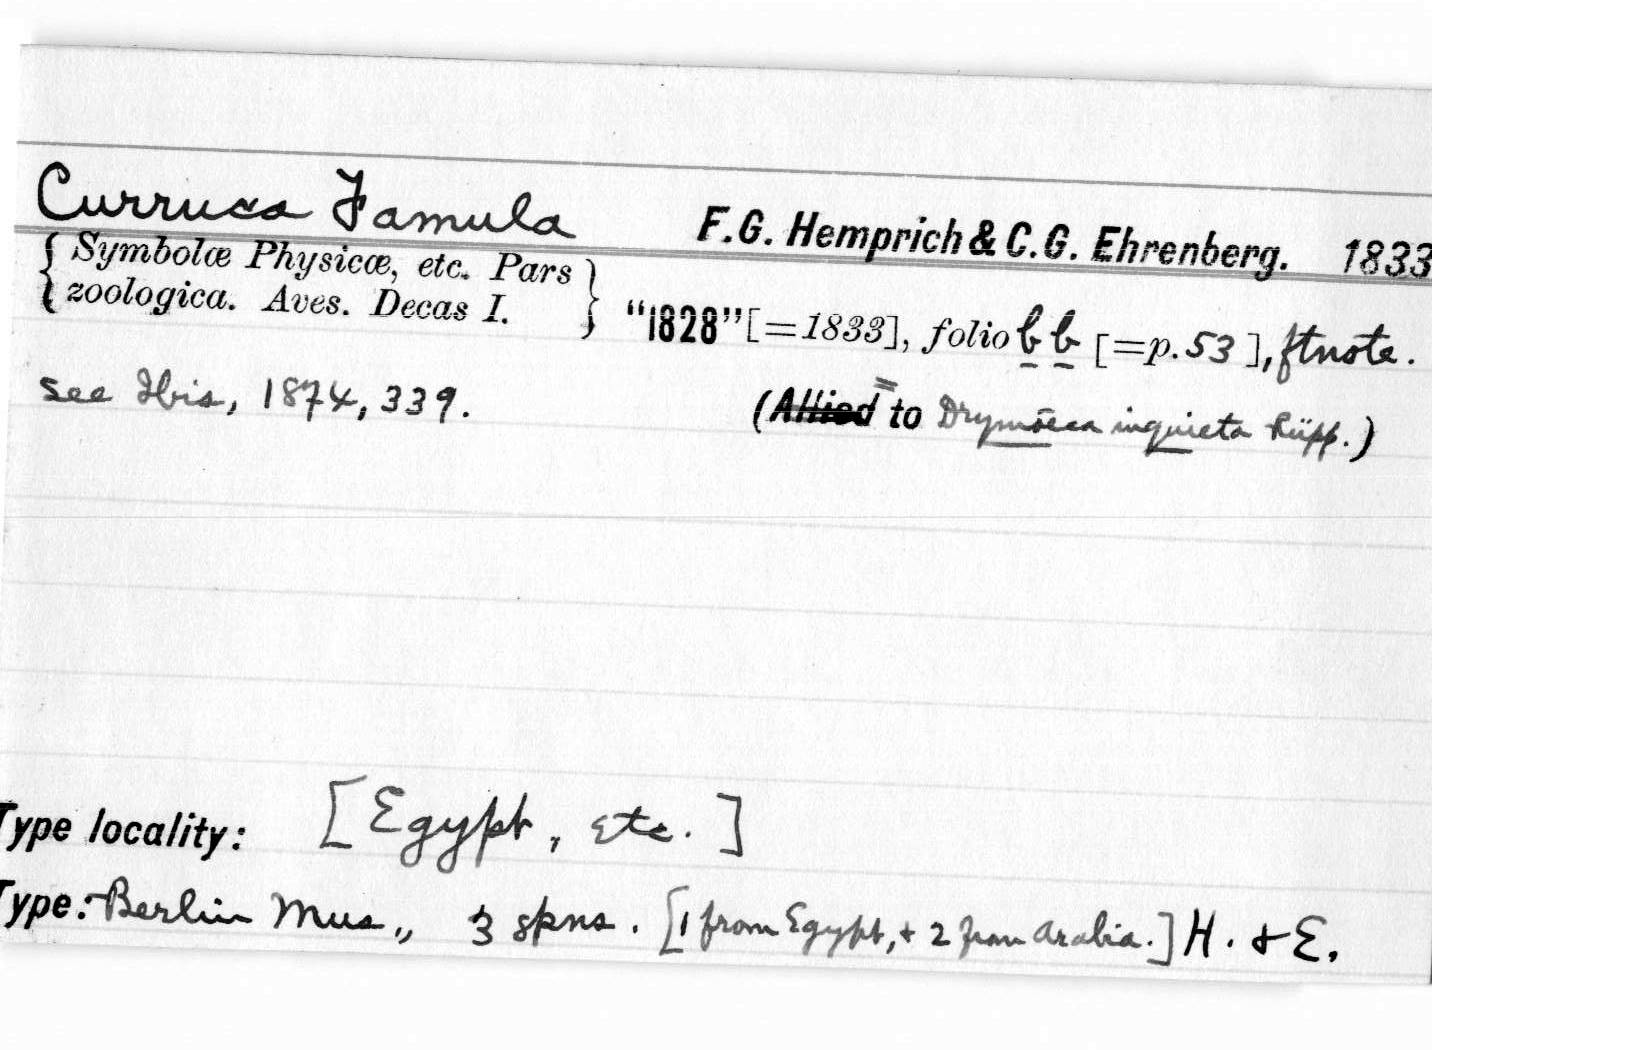 Curruca Famula F.G. Hemprich & C.G. Ehrenberg. 1833
{ Symbolæ Physicæ, etc. Pars
zoologica. Aves. Decas I. } "1828" [=1833], folio b b [=p. 53], ftnote.
See Ibis, 1874, 339. (Allied = to Drymœca inquieta Rüpp.)
Type locality: [Egypt, etc.]
Type: Berlin Mus., 3 spns. [1 from Egypt, + 2 from Arabia.] H. & E.